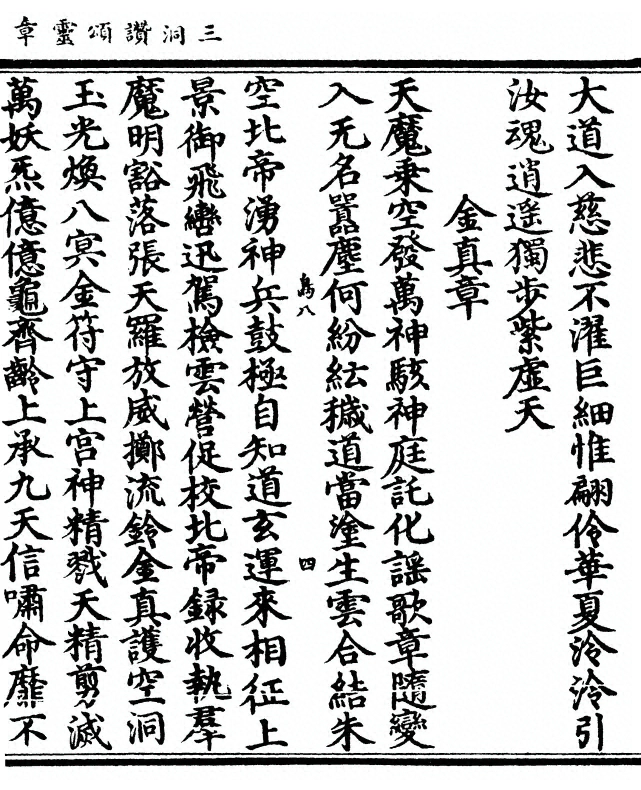 三洞讚頌靈章
大道入慈悲不濯巨細惟翩伶華夏泠泠引
汝魂逍遥獨步紫虛天
金真章
天魔乗空發萬神駭神庭託化謡歌章隨變
入无名囂塵何紛紜穢道當塗生雲合結朱
鳥八
四
空比帝湧神兵鼓極自知道玄運來相征上
景御飛轡迅駕檢雲營促校比帝録收執羣
魔明豁落張天羅放威擲流鈴金真護空洞
玉光煥八冥金符守上宫神精戮天精剪滅
萬妖炁億億龜齊齡上承九天信嘯命靡不